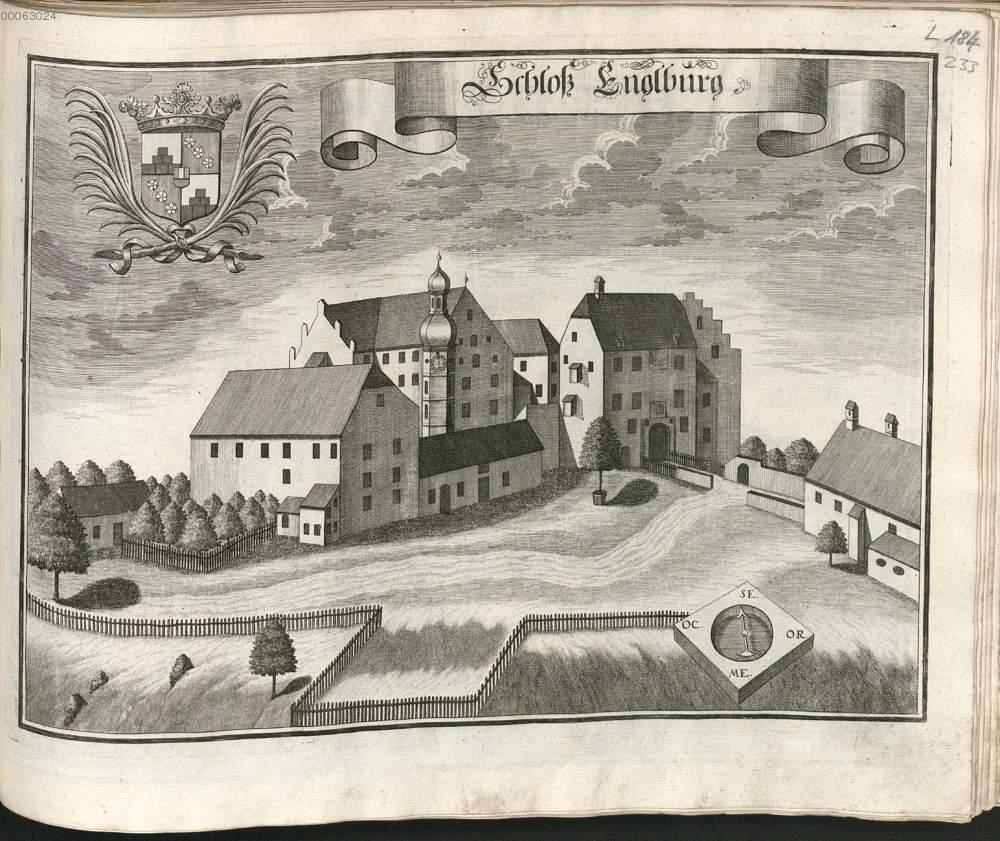 00063024
L 184
233
Schloß Englburg
SE.
OC.
OR.
ME.